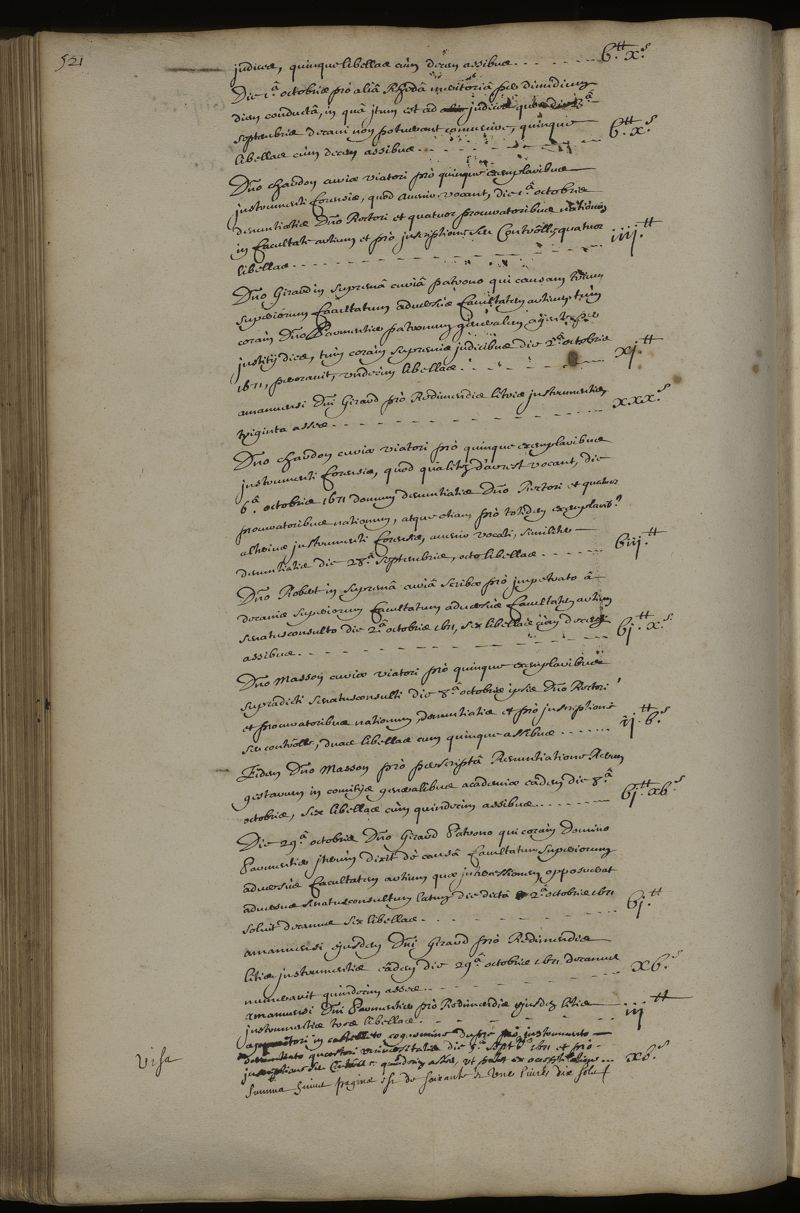 521
judices, quinque libellae cùm decem assibus ........ 6.tt x.s
Die 1.a octobris pro aliâ Rhedâ meritoriâ per dimidium
diem conductâ, in quâ itum est ad judices quos die
septembris decani non potuerant convenire, quinque
libellae cùm decem assibus ........ 6.tt x.s
Dno chardon curiae viatori prò quinque exemplaribus
instrumenti forensis, quod avenir vocant, die 1.a octobris
denuntiatis Dno Rectori et quatuor procuratoribus nationum
in facultate artium et prò inscriptione seu Controlle, quatuor
libellae ........ iiij.tt
Dno Giraud in supremâ curiâ patrono qui causam trium
superiorum facultatum adversus facultatem artium tùm
coràm Dno Parmentier patronum generalem agente
justitij dies, tùm coràm supremis judicibus die 2.a octobris
1671, peroravit, undecim libellae ........ xj.tt
amanuensi Dni Giraud prò Redimendis litis instrumentis
triginta asses ........ xxx.s
Dno chardon curiae viatori prò quinque exemplaribus
instrumenti forensis, quod qualitez d'arrest vocant, die
6.a octobris 1671 domum denuntiatis Dno Rectori et quatuor
procuratoribus nationum, atque etiam prò totidem exemplaribus
alterius instrumenti forensis, avenir vocati, similiter
denuntiatis die 28.a septembris, octo libellae ........ 6iij.tt
Dno Robert in supremâ curiâ scribae prò impetrato à
decanis superiorum facultatum adversus facultatem artium
senatusconsulto die 2.a octobris 1671, sex libellae cùm decem
assibus ........ 6j.tt x.s
Dno Masson curiae viatori prò quinque exemplaribus
supradicti senatusconsulti die 8.a octobris ipsis Dno Rectori
et procuratoribus nationum, denuntiatis et prò inscriptione
seu controlle, duae libellae cum quinque assibus ........ ij.tt 6.s
Eidem Dno Masson prò perscriptâ Renuntiatione Rerum
gestarum in comitijs generalibus academiae eâdem die 8.a
octobris, sex libellae cùm quindecim assibus ........ 6j.tt x6.s
Die 29.a octobris Dno Giraud Patrono qui coràm Domino
Parmentier iterùm dixit de causâ facultatum superiorum
adversus facultatem artium quae intercessionem opposuerat
adversus senatusconsultum latum die dictâ 2.a octobris 1671
soluit decanus sex libellas ........ 6j.tt
amanuensi ejusdem Dni Giraud prò Redimendis
litis instrumentis eâdem die 29.a octobris 1671 decanus
numeravit quindecim asses ........ x6.s
Amanuensi Dni Parmentier prò Redimendis ejusdem litis
instrumentis tres libellas ........ iij.tt
apparitori in castelleto cognomine dupré prò instrumento
denuntiato quaestori universitatis die 5.a sept.bris 1671 et prò
inscriptione seu Controlle quindecim asses, ut patet ex acceptilatione ... x6.s
visa
Summa huius paginae est de soixante et une livres dix solz